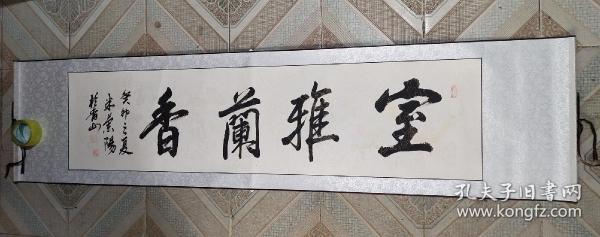 室雅蘭香
癸卯之夏
宋葉陽
於香山
孔夫子旧书网
www.kongfz.com